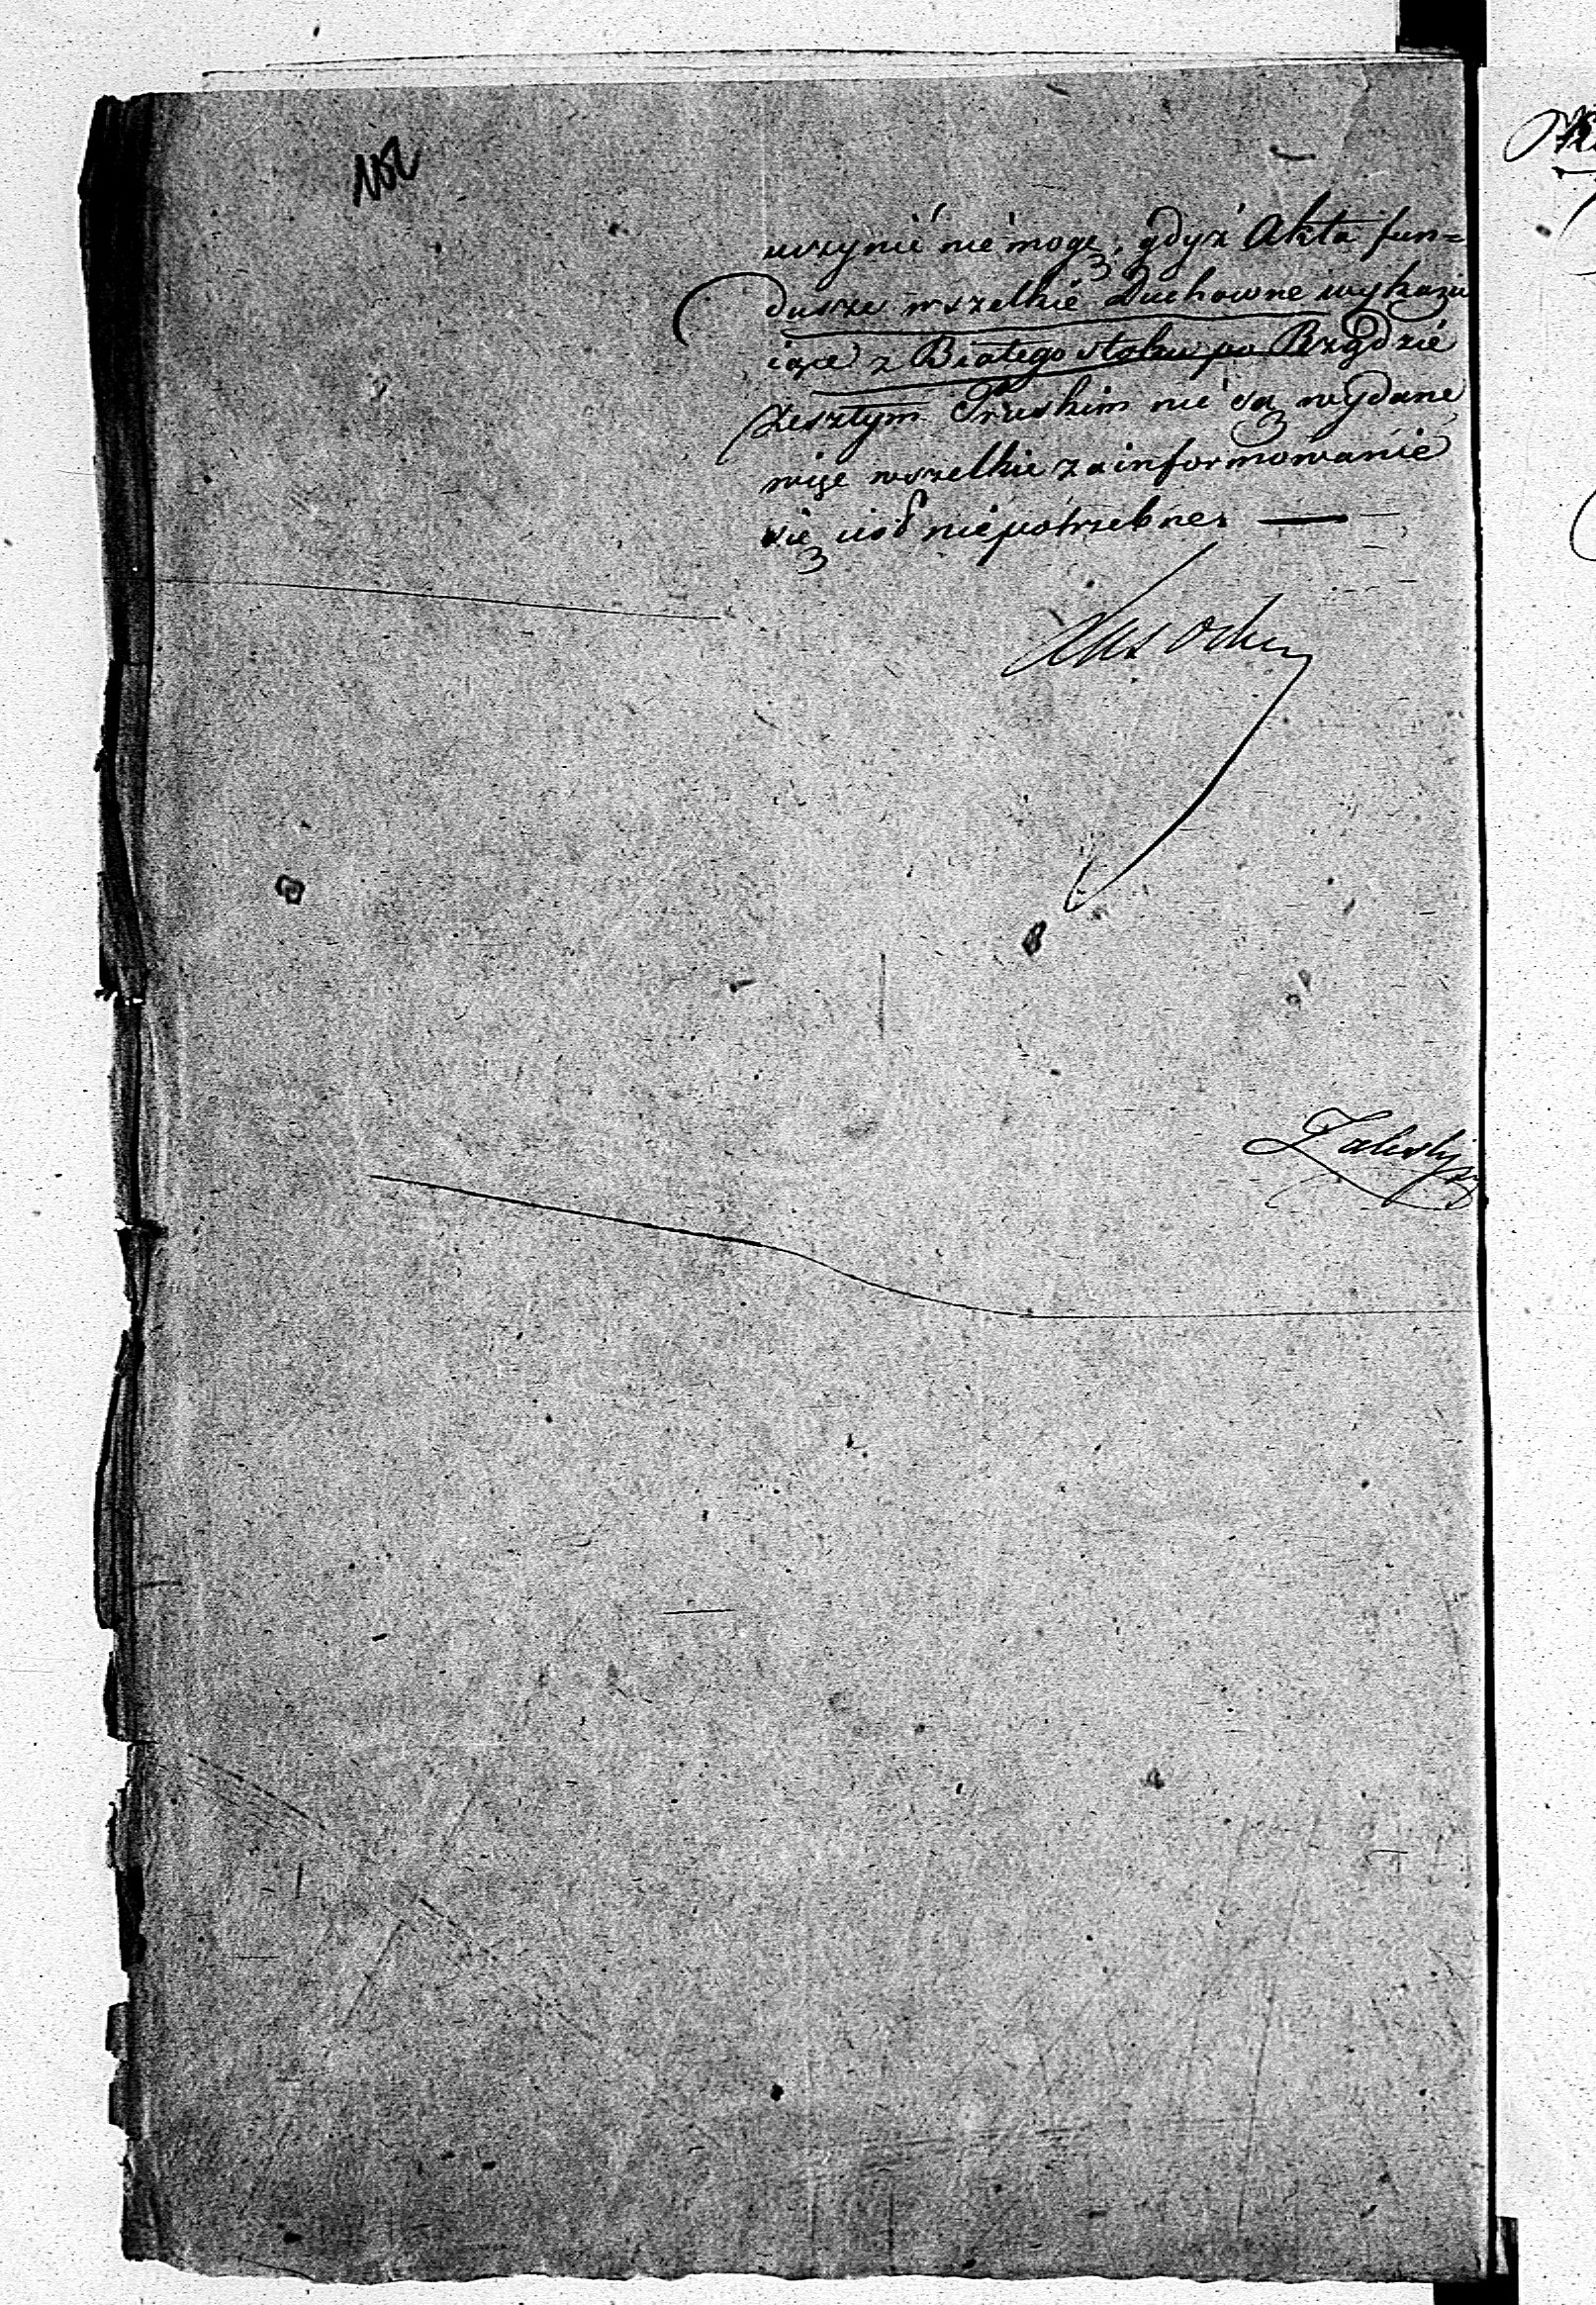 102
uczynić nié mogę, gdyż Akta fun=
dusze wszelkié Duchowne wykazu
iące z Białego stoku po Rządzié
Zeszłym Pruskim nié są wydane,
więc wszelkie zainformowanié
się iest niépotrzebne.
Zaleski